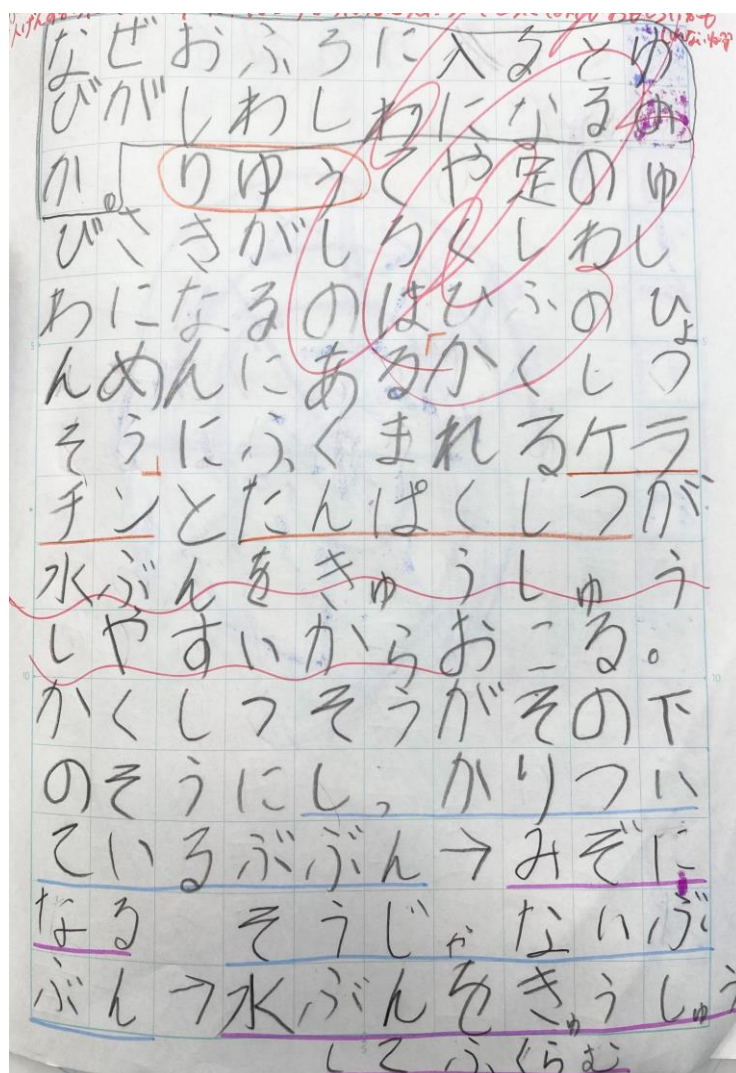 なぜおふろに入るとゆ
びがしわしわになるの
か。りゆうてや足のゆ
びさきがしろくしわし
わになるのはひふのひょ
んめんにある「かくしつ
そう」にふくまれるケラ
チンとたんぱくしつが
水ぶんをきゅうしゅう
しやすいからおこる。
かくしつそうがその下
のそうにしっかりつい
ているぶぶん→みぞに
なる そうじゃないぶ
ぶん→水ぶんをきゅうしゅう
してふくらむ